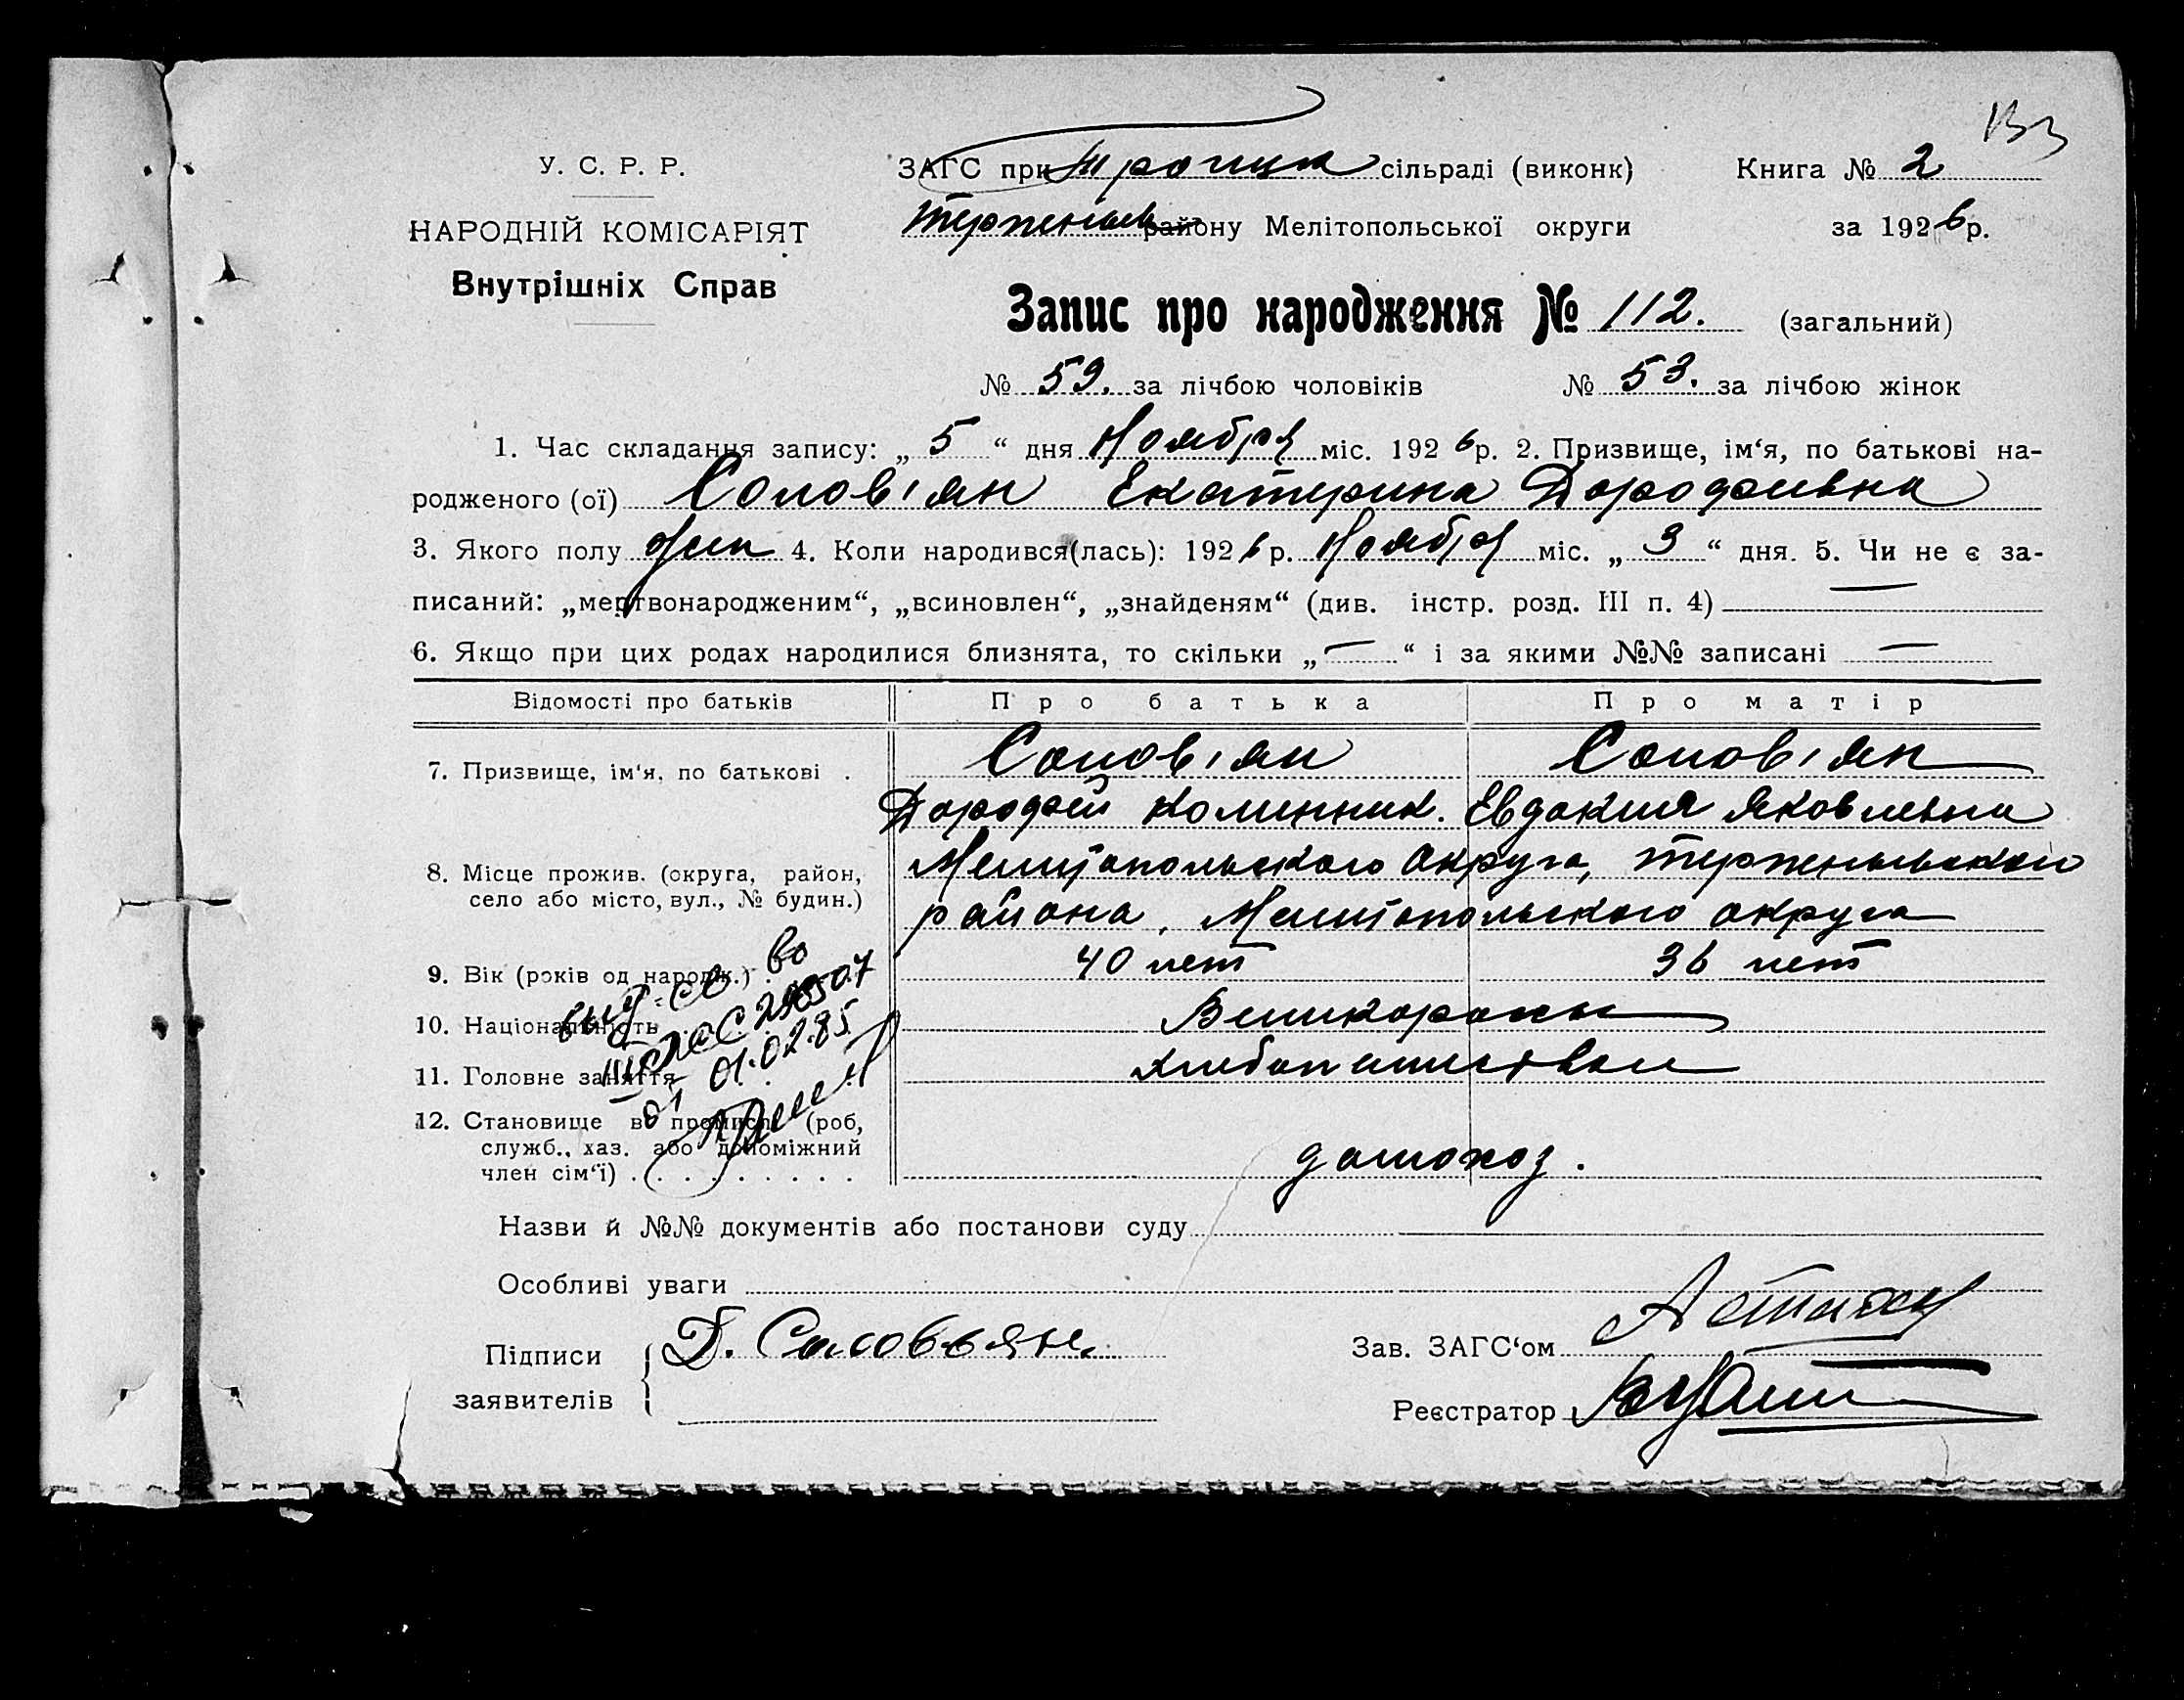 133
У. С. Р. Р.
НАРОДНІЙ КОМІСАРІЯТ
Внутрішніх Справ
ЗАГС при Троицк сільраді (виконк) Книга № 2
Терпеньев району Мелітопольської округи за 1926 р.
Запис про народження № 112. (загальний)
№ 59. за лічбою чоловіків № 53. за лічбою жінок
1. Час складання запису: „ 5 “ дня Ноября міс. 1926 р. 2. Призвище, ім‘я, по батькові на-
родженого (ої) Солов'ян Екатерина Дорофеевна
3. Якого полу жен 4. Коли народився(лась): 1926 р. Ноября міс. „ 3 “ дня. 5. Чи не є за-
писаний: „мертвонародженим“, „всиновлен“, „знайденям“ (див. інстр. розд. III п. 4) —
6. Якщо при цих родах народилися близнята, то скільки „ — “ і за якими №№ записані —
Відомості про батьків Про батька Про матір
7. Призвище, ім‘я, по батькові . Солов'ян Солов'ян
Дорофей Евдокия Яковлевна
8. Місце прожив. (округа, район,
село або місто, вул., № будин.)
Мелитопольского округа, Терпеньевского
района, Мелитопольского округа
9. Вік (років од народж.) . 40 лет 36 лет
10. Національність Великороссы
11. Головне заняття
12. Становище в промислі (роб,
служб., хаз. або допоміжний
член сім‘ї) . . . . . . . . .
домохоз.
от 01.02.85
Назви й №№ документів або постанови суду
Особливі уваги
Підписи
заявителів
Д. Соловьян.
Зав. ЗАГС‘ом
Реєстратор